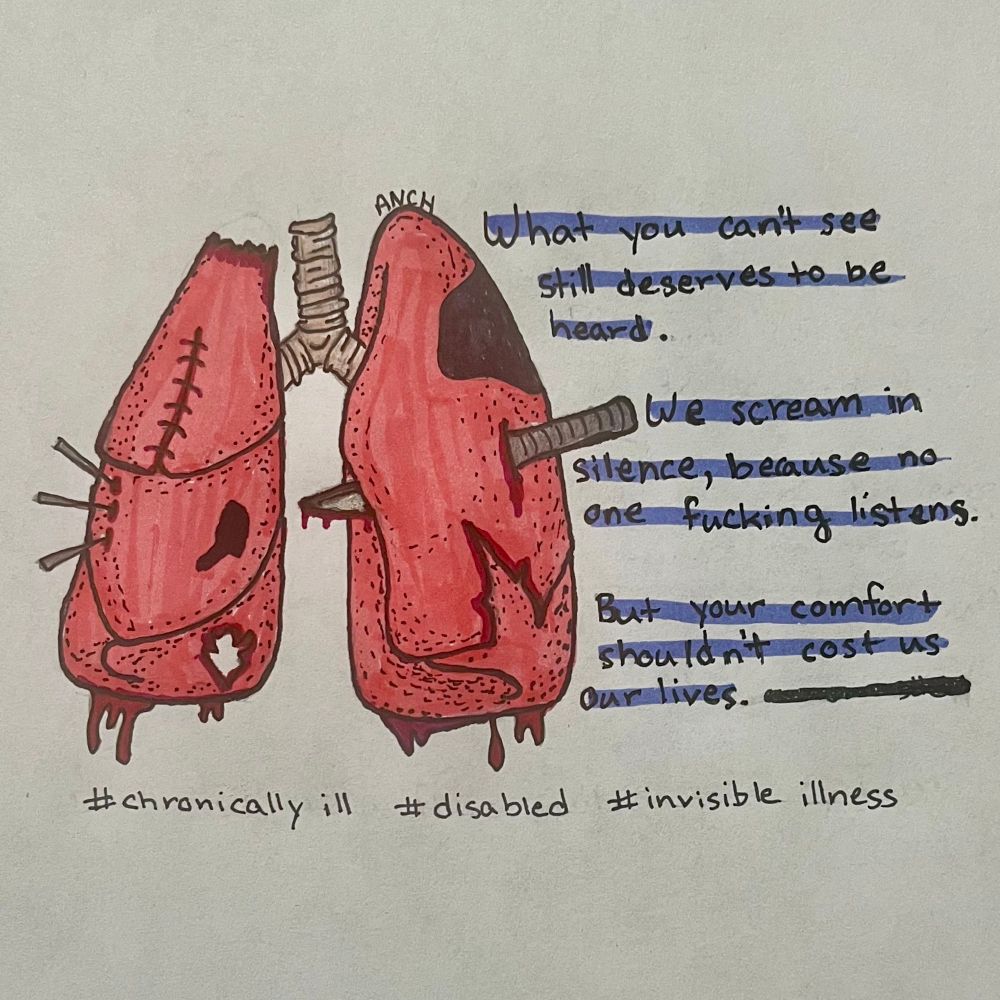 ANCH
What you can't see
still deserves to be
heard.
We scream in
silence, because no
one fucking listens.
But your comfort
shouldn't cost us
our lives.
#chronically ill #disabled #invisible illness